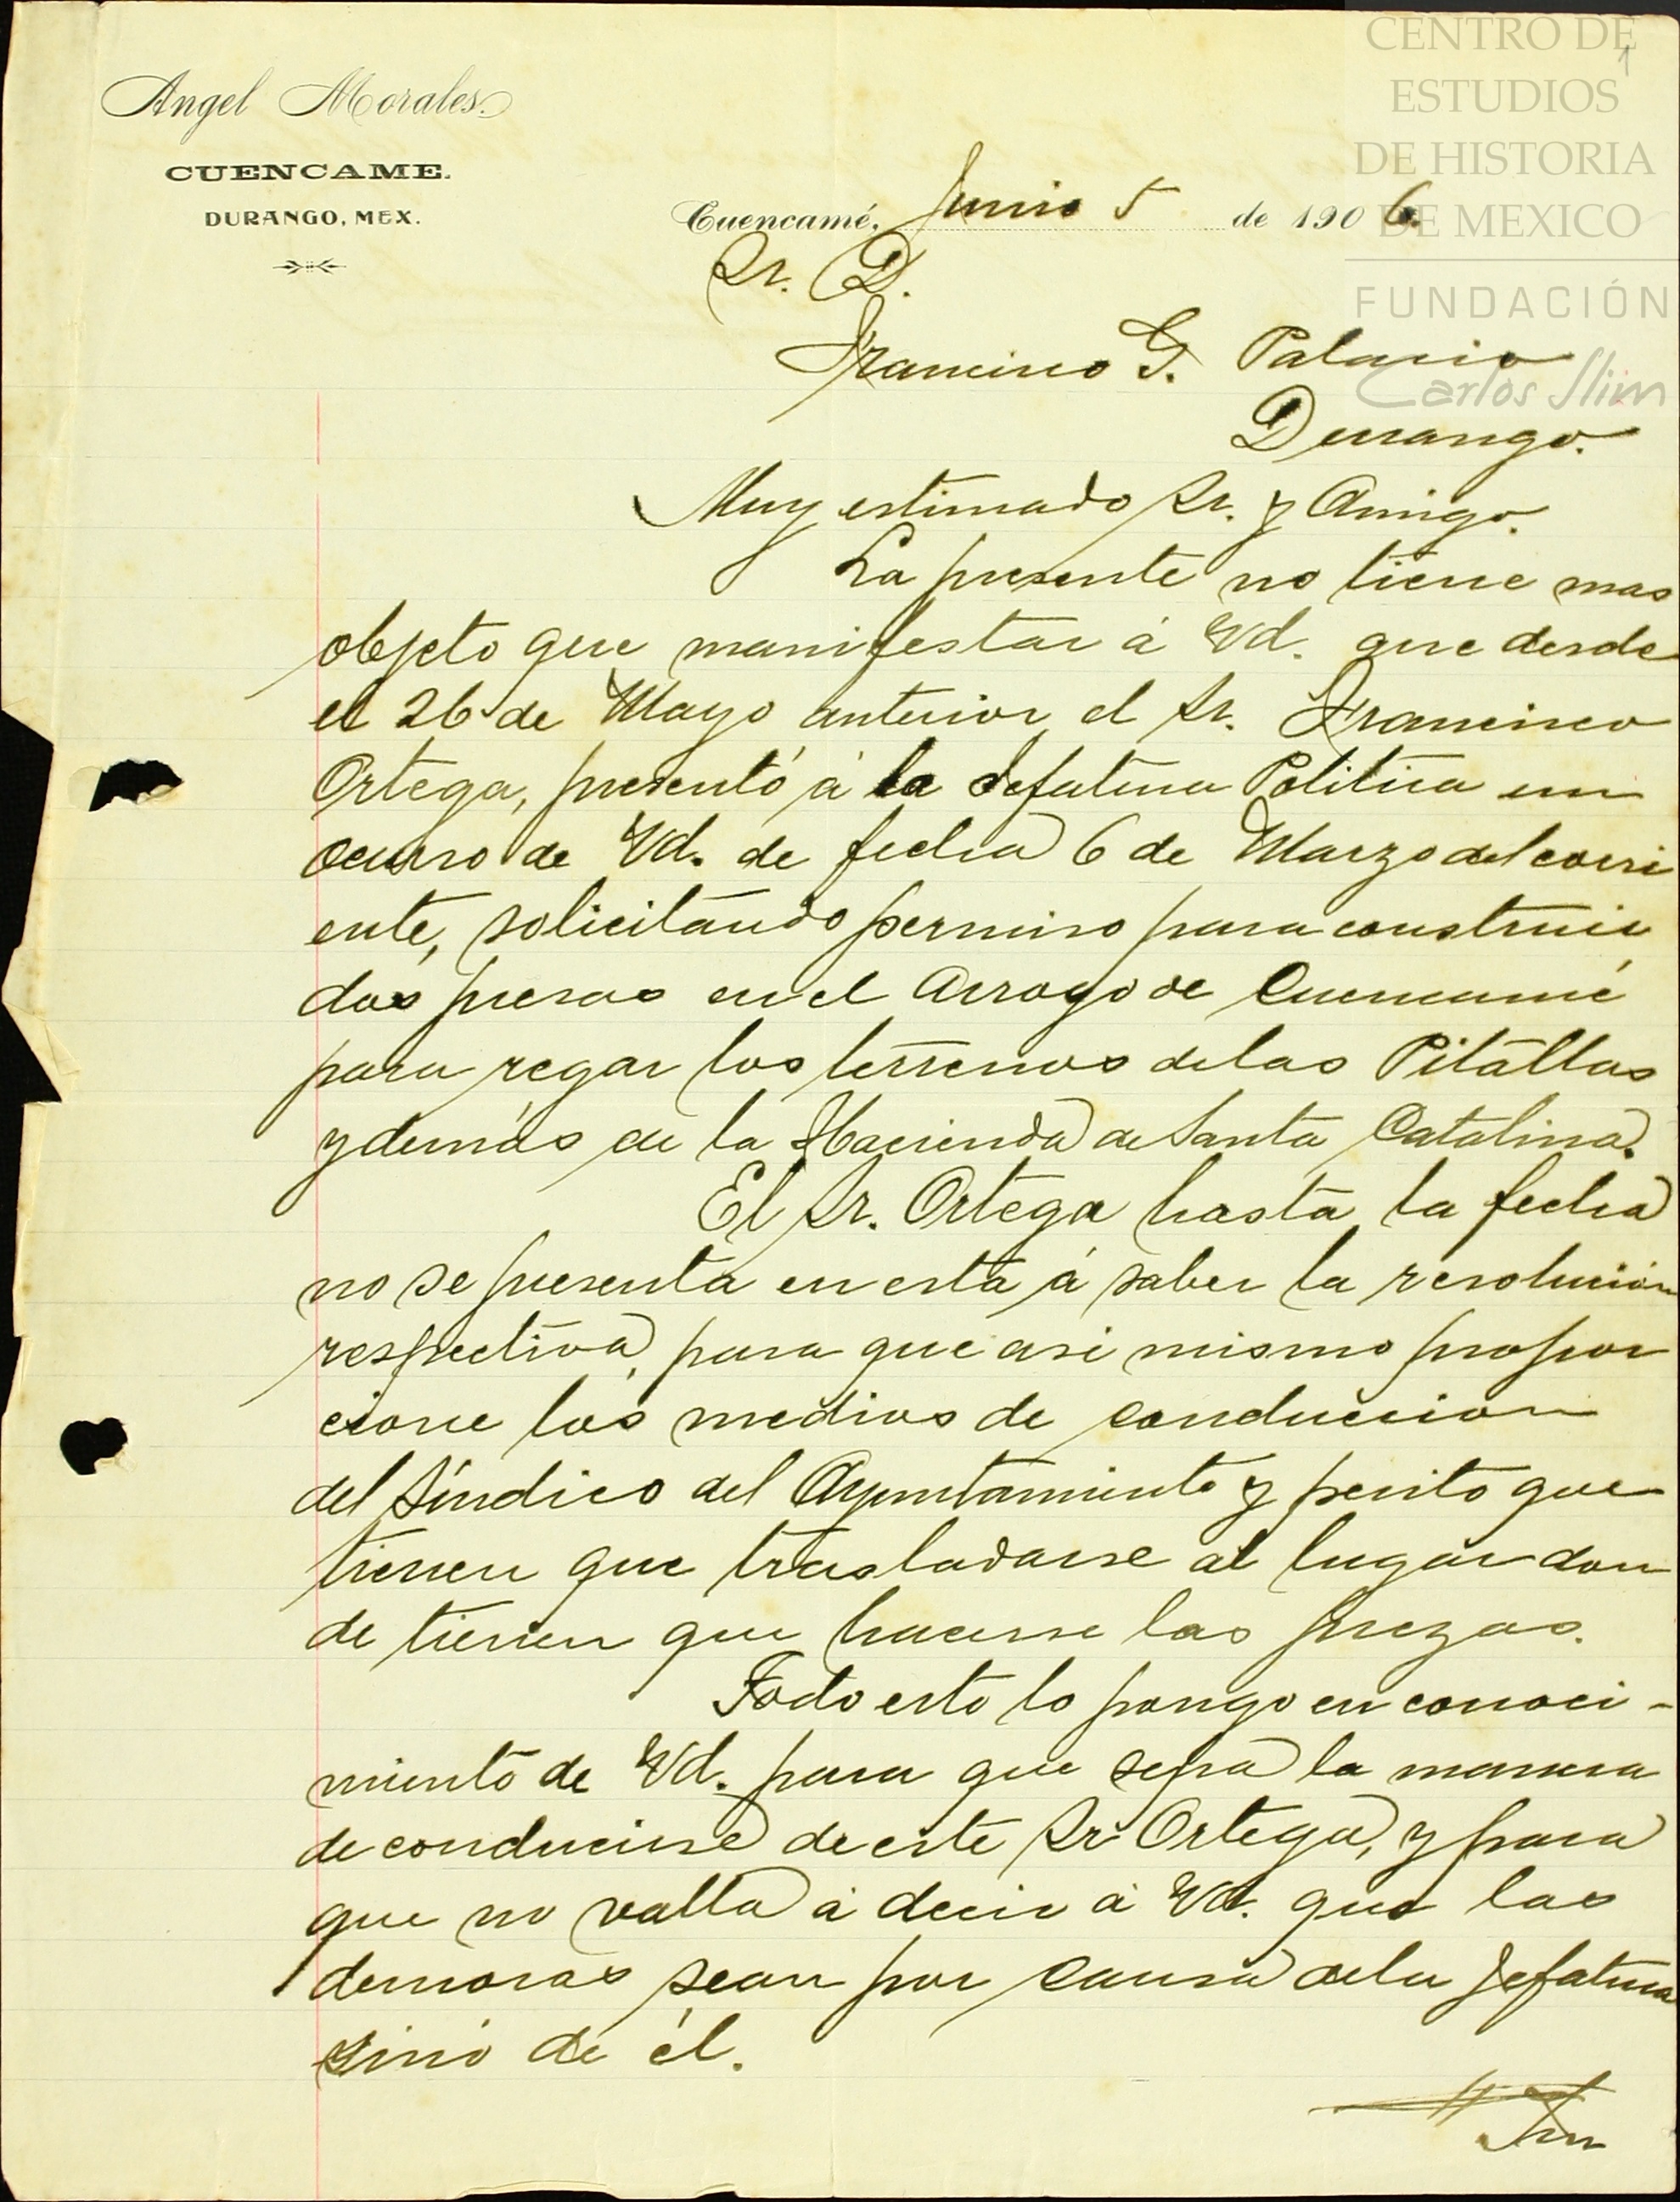 CENTRO DE
ESTUDIOS
DE HISTORIA
DE MEXICO
FUNDACIÓN
Carlos Slim
1
Angel Morales.
CUENCAME.
DURANGO, MEX.
Cuencamé, Junio 5 de 1906.
Sr. D.
Francisco G. Palacio
Durango.
Muy estimado Sr. y Amigo.
La presente no tiene mas
objeto que manifestar á Vd. que desde
el 26 de Mayo anterior el Sr. Francisco
Ortega, presentó á la Jefatura Politica un
ocurso de Vd. de fecha 6 de Marzo del corri
ente, solicitando permiso para construir
dos presas en el Arroyo de Cuencamé
para regar los terrenos de las Pitallas
y demás de la Hacienda de Santa Catalina.
El Sr. Ortega hasta la fecha
no se presenta en esta á saber la resolución
respectiva, para que asi mismo propor
cione los medios de conduccion
del Síndico del Ayuntamiento y perito que
tienen que trasladarse al lugar don
de tienen que hacerse las prezas.
Todo esto lo pongo en conoci-
miento de Vd. para que sepa la manera
de conducirse de este Sr. Ortega, y para
que no valla á decir á Vd. que las
demoras sean por causa de la Jefatura
sinó de él.